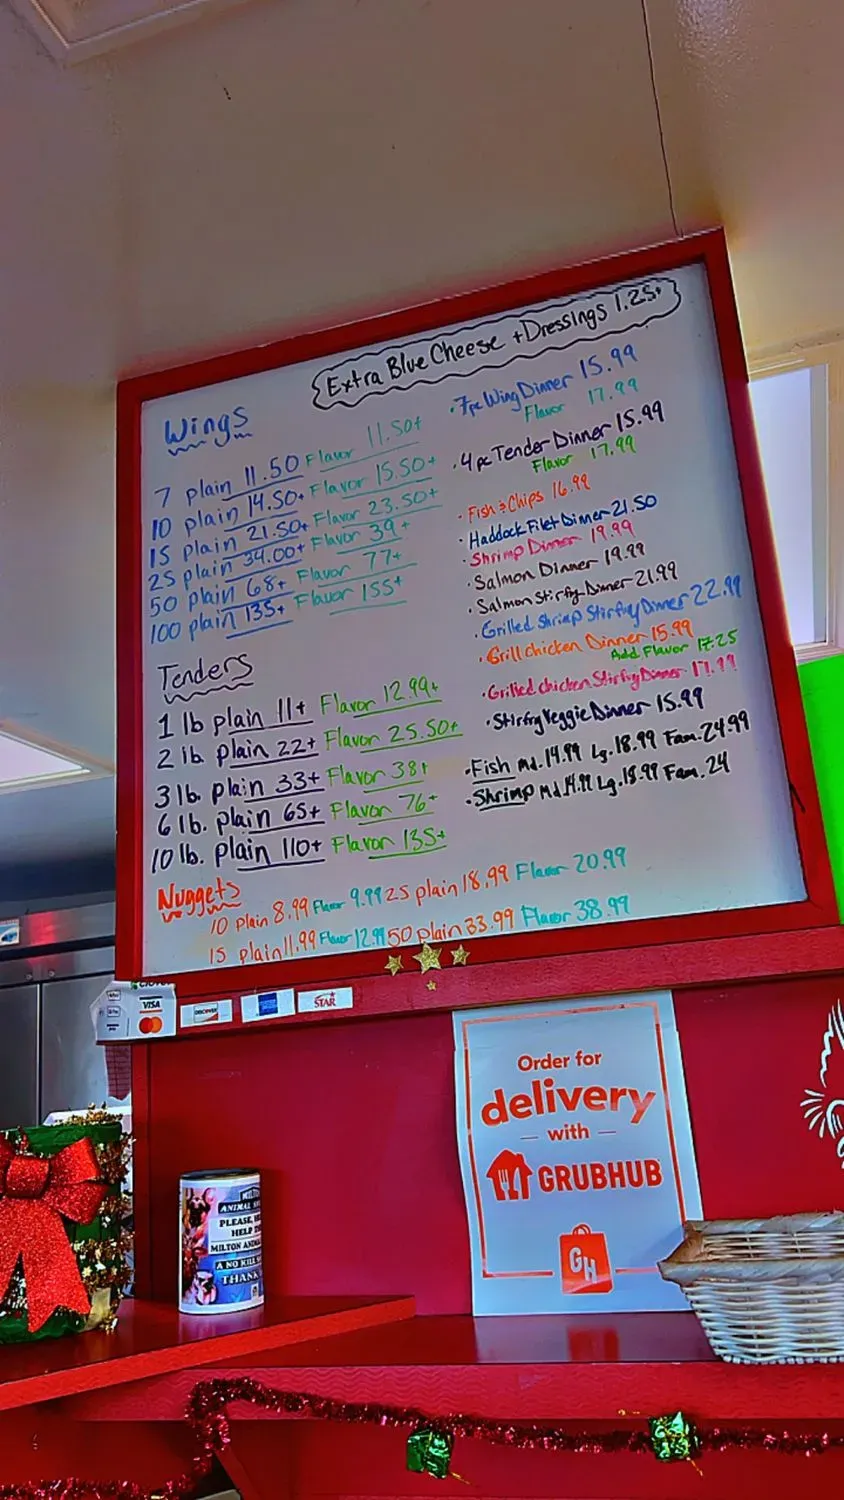 Extra Blue Cheese + Dressings 1.25+
Wings
7 plain 11.50 Flavor 11.50+
10 plain 14.50+ Flavor 15.50+
15 plain 21.50+ Flavor 23.50+
25 plain 34.00+ Flavor 39+
50 plain 68+ Flavor 77+
100 plain 135+ Flavor 155+
Tenders
1 lb plain 11+ Flavor 12.99+
2 lb plain 22+ Flavor 25.50+
3 lb. plain 33+ Flavor 38+
6 lb. plain 65+ Flavor 76+
10 lb. plain 110+ Flavor 135+
· 7pc Wing Dinner 15.99
Flavor 17.99
· 4 pc Tender Dinner 15.99
Flavor 17.99
· Fish & Chips 16.99
· Haddock Filet Dinner 21.50
· Shrimp Dinner 19.99
· Salmon Dinner 19.99
· Salmon Stirfry Dinner 21.99
· Grilled Shrimp Stirfry Dinner 22.99
· Grill chicken Dinner 15.99
Add Flavor 17.25
· Grilled chicken Stirfry Dinner 17.99
· Stirfry Veggie Dinner 15.99
· Fish Md. 14.99 Lg. 18.99 Fam. 24.99
· Shrimp Md. 14.99 Lg. 18.99 Fam. 24
Nuggets
10 plain 8.99 Flavor 9.99 25 plain 18.99 Flavor 20.99
15 plain 11.99 Flavor 12.99 50 plain 33.99 Flavor 38.99
VISA
DISCOVER
STAR
Order for
delivery
with
GRUBHUB
GH
ANIMAL
PLEASE,
HELP
MILTON
A NO KILL
THANK